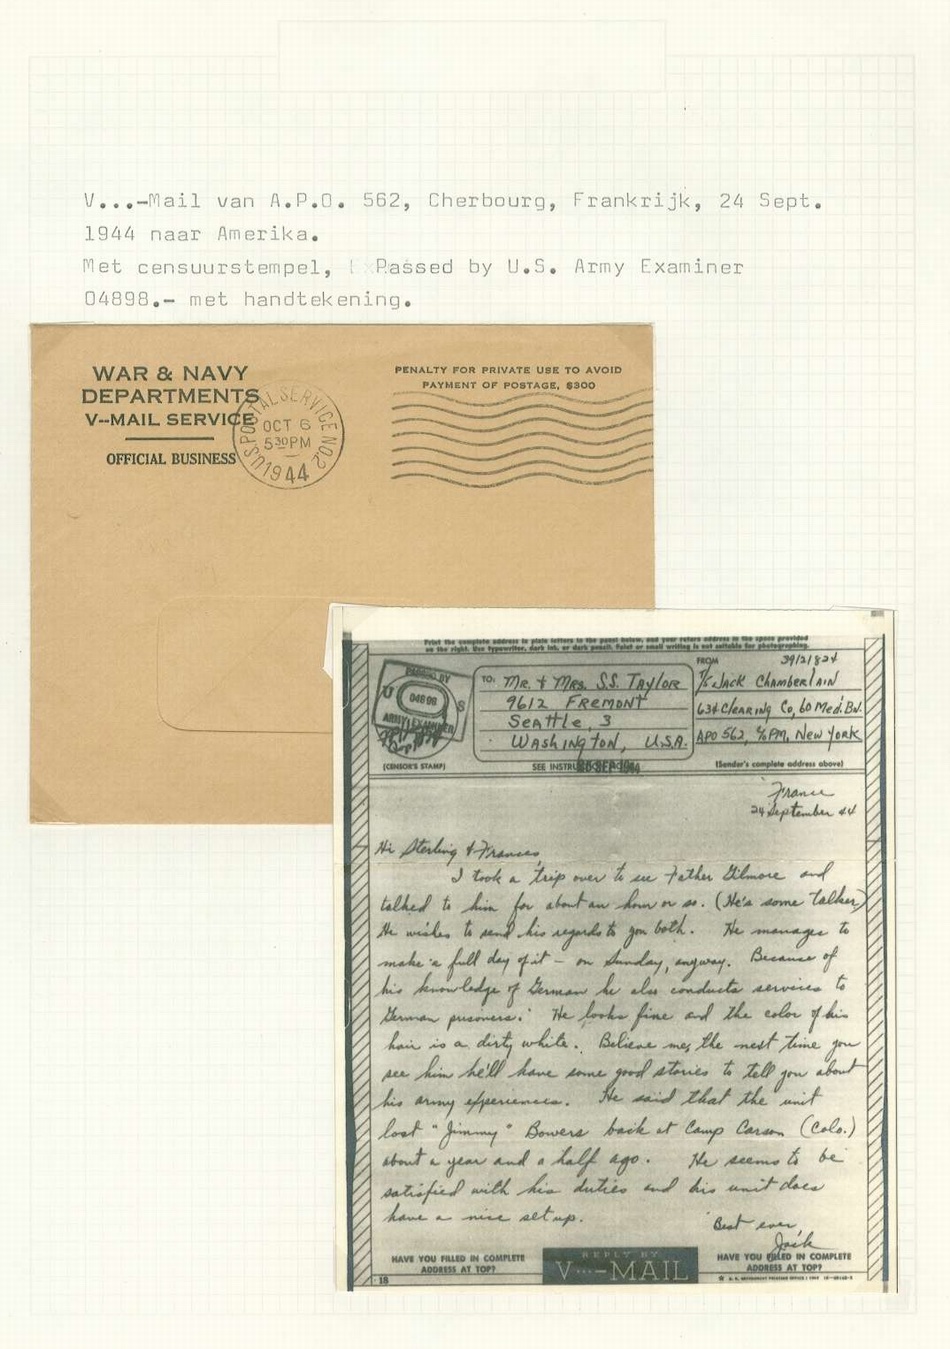 V...-Mail van A.P.O. 562, Cherbourg, Frankrijk, 24 Sept.
1944 naar Amerika.
Met censuurstempel, Passed by U.S. Army Examiner
04898.- met handtekening.
WAR & NAVY
DEPARTMENTS
V--MAIL SERVICE
OFFICIAL BUSINESS
U.S. POSTAL SERVICE NO. 2
OCT 6
5 30 PM
1944
PENALTY FOR PRIVATE USE TO AVOID
PAYMENT OF POSTAGE, $300
Print the complete address in plain letters in the panel below, and your return address in the space provided
on the right. Use typewriter, dark ink, or dark pencil. Faint or small writing is not suitable for photographing.
PASSED BY
U S
04898
ARMY EXAMINER
(CENSOR'S STAMP)
TO:
Mr. & Mrs. S.S. Taylor
9612 Fremont
Seattle, 3
Washington, U.S.A.
SEE INSTRUC
SEP 1944
FROM
39121824
T/5 Jack Chamberlain
634 Clearing Co, 60 Med. Bn.
APO 562, c/o PM, New York
(Sender's complete address above)
France
24 September 44
Hi Sterling & Frances,
I took a trip over to see Father Gilmore and
talked to him for about an hour or so. (He's some talker)
He wishes to send his regards to you both. He manages to
make a full day of it - on Sunday, anyway. Because of
his knowledge of German he also conducts services to
German prisoners. He looks fine and the color of his
hair is a dirty white. Believe me, the next time you
see him he'll have some good stories to tell you about
his army experiences. He said that the unit
lost "Jimmy" Bowers back at Camp Carson (Colo.)
about a year and a half ago. He seems to be
satisfied with his duties and his unit does
have a nice set up.
Best ever,
Jack
HAVE YOU FILLED IN COMPLETE
ADDRESS AT TOP?
REPLY BY
V...-MAIL
HAVE YOU FILLED IN COMPLETE
ADDRESS AT TOP?
18